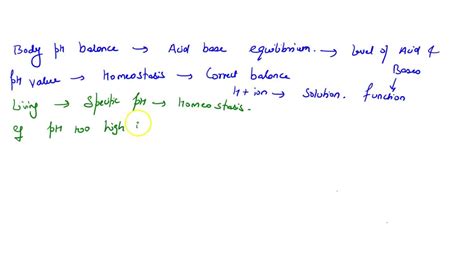 Body pH balance → Acid base equilibrium. → Level of Acid &
Bases
pH value → Homeostasis → Correct balance
H + ion → Solution. function
Living → Specific pH → Homeostasis.
eg pH too high i